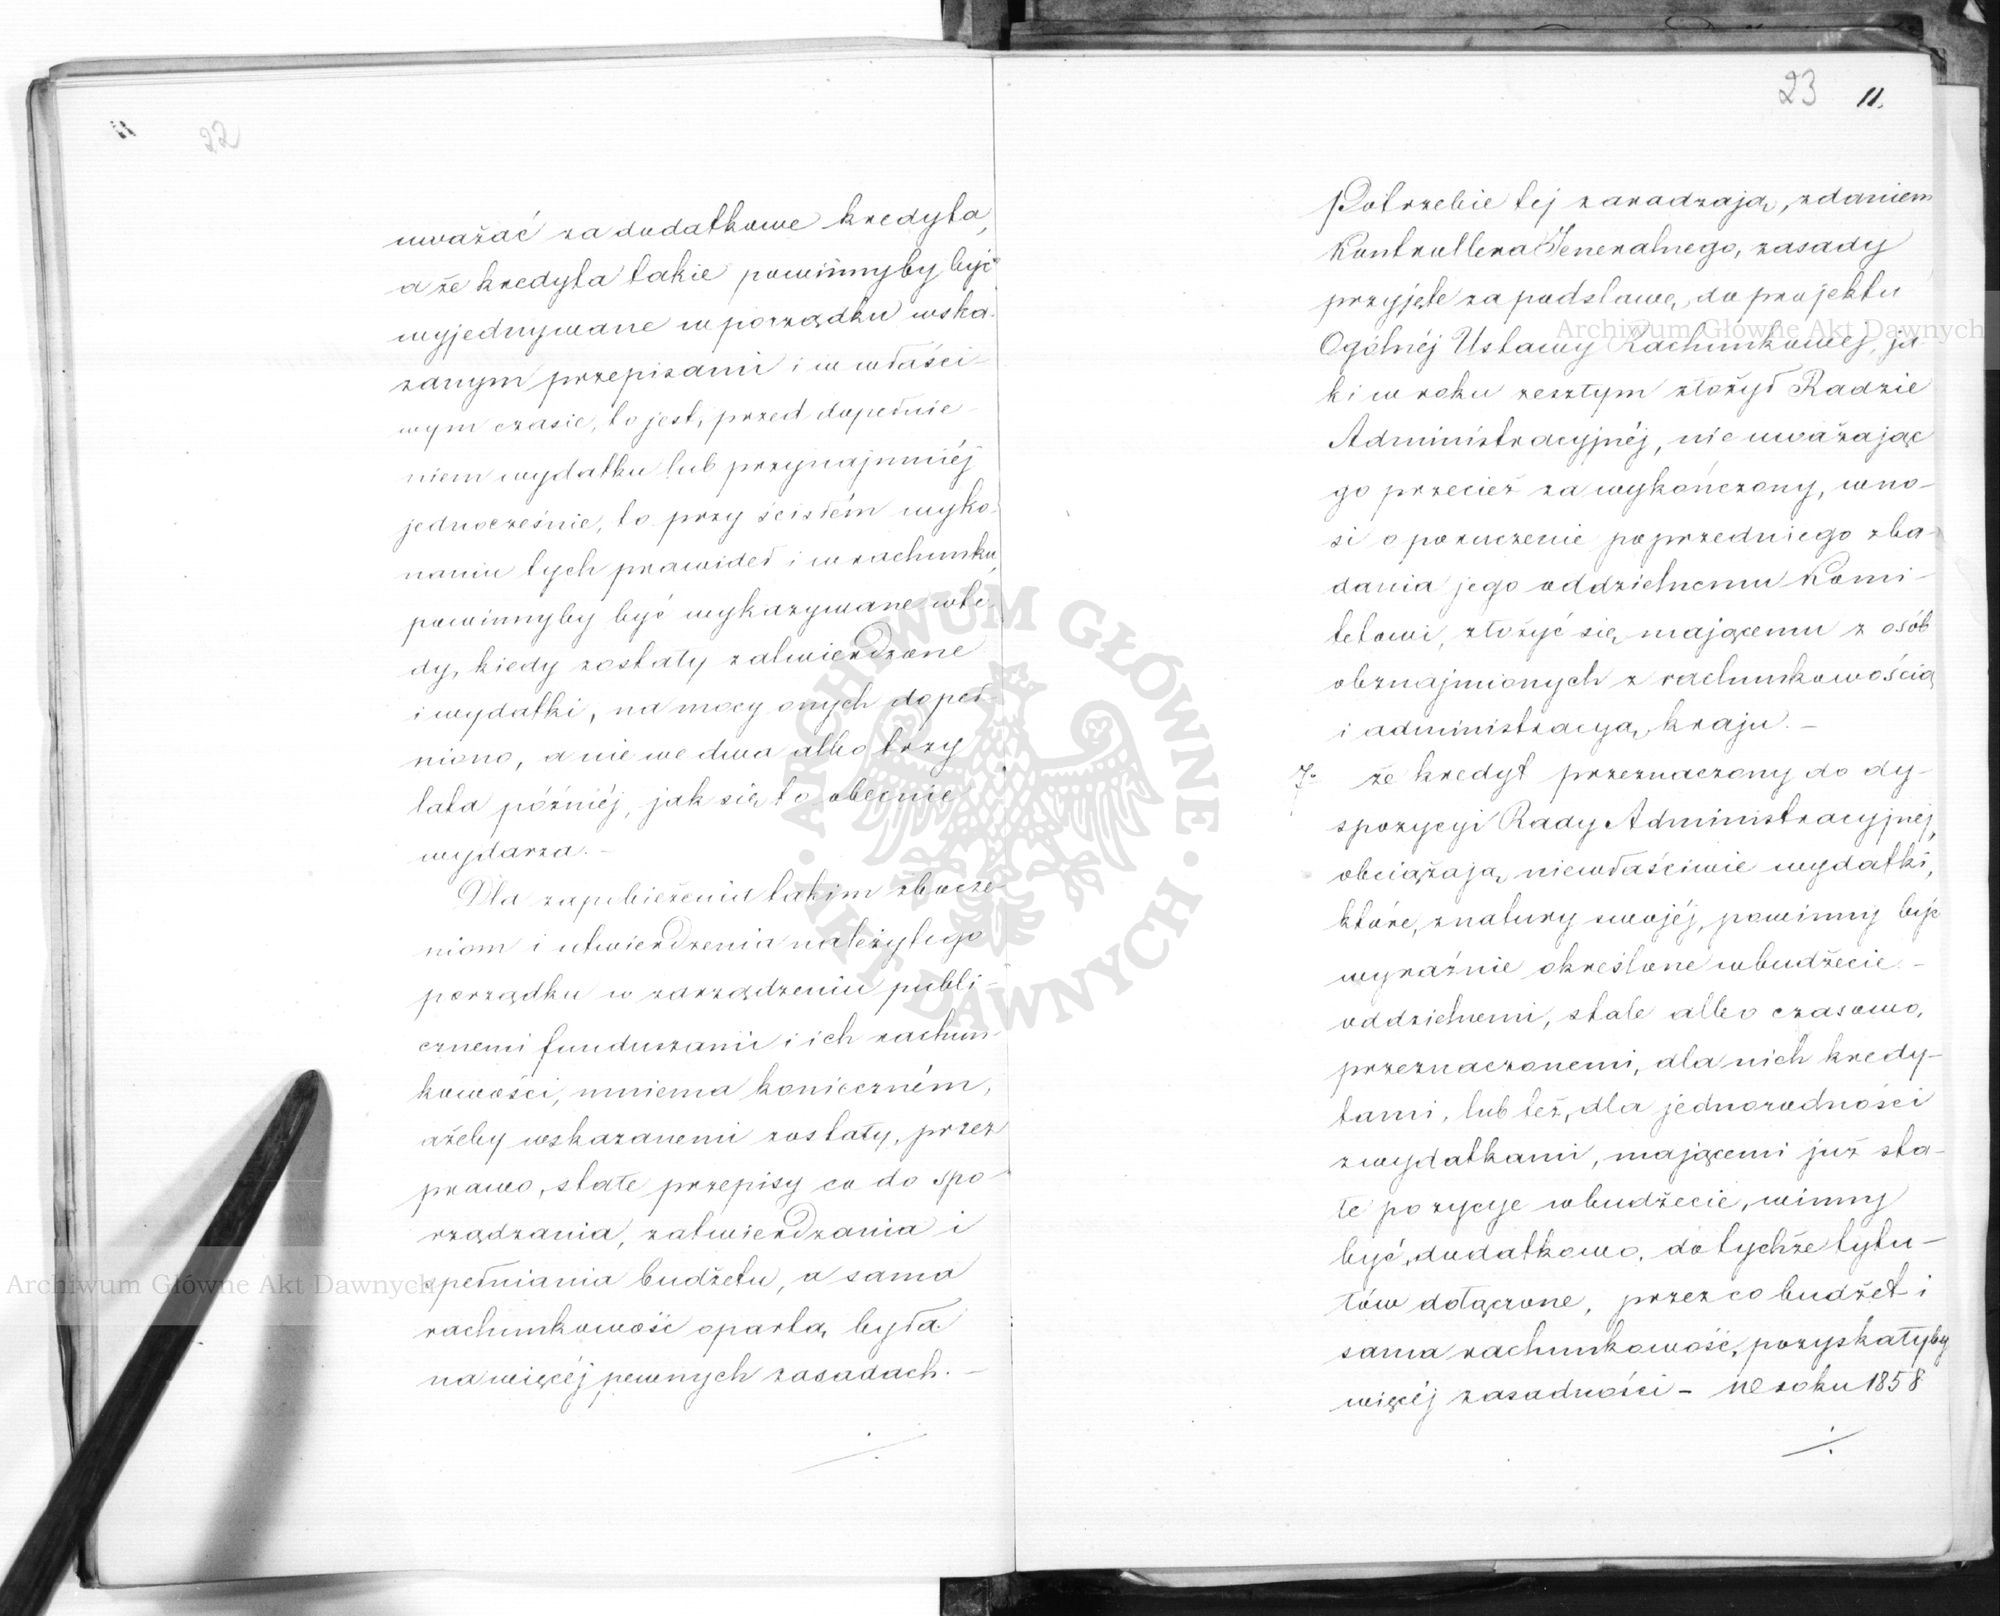 22
uważać za dodatkowe kredyta,
a że kredyta takie powinnyby być
wyjednywane w porządku wska-
zanym przepisami i w właści-
wym czasie, to jest, przed dopełnie-
niem wydatku lub przynajmniéj
jednocześnie, to przy ścisłém wyko-
naniu tych prawideł i w rachunku,
powinnyby być wykazywane wte-
dy, kiedy zostały zatwierdzone
i wydatki, na mocy onych dopeł-
niono, a nie we dwa albo trzy
lata późniéj, jak się to obecnie
wydarza. –
Dla zapobieżenia takim zbocze-
niom i utwierdzenia należytego
porządku w zarządzeniu publi-
cznemi funduszami i ich rachun-
kowości, mniema konieczném,
ażeby wskazanemi zostały, przez
prawo, stałe przepisy co do spo-
rządzania, zatwierdzania i
spełniania budżetu, a sama
rachunkowość opartą była
na więcéj pewnych zasadach. –
23 11.
Potrzebie tej zaradzają, zdaniem
Kontrollera Jeneralnego, zasady
przyjęte za podstawę, do projektu
Ogólnéj Ustawy Rachunkowej, ja-
ki w roku zeszłym złożył Radzie
Administracyjnéj, nie uważając
go przecież za wykończony, wno-
si o poruczenie poprzedniego zba-
dania jego oddzielnemu Komi-
tetowi, złożyć się mającemu z osób
obznajmionych z rachunkowością
i administracyą kraju. –
7° że kredyt przeznaczony do dy-
spozycyi Rady Administracyjnéj,
obciążają niewłaściwie wydatki,
które, z natury swojéj, powinny być
wyraźnie określone w budżecie –
oddzielnemi, stale albo czasowo,
przeznaczonemi, dla nich kredy-
tami, lub też, dla jednorodności
z wydatkami, mającemi już sta-
łe pozycye w budżecie, winny
być, dodatkowo, do tychże tytu-
łów dołączone, przez co budżet i
sama rachunkowość, pozyskałyby
więcéj zasadności – W roku 1858
Archiwum Główne Akt Dawnych
Archiwum Główne Akt Dawnych
ARCHIWUM GŁÓWNE · AKT DAWNYCH ·